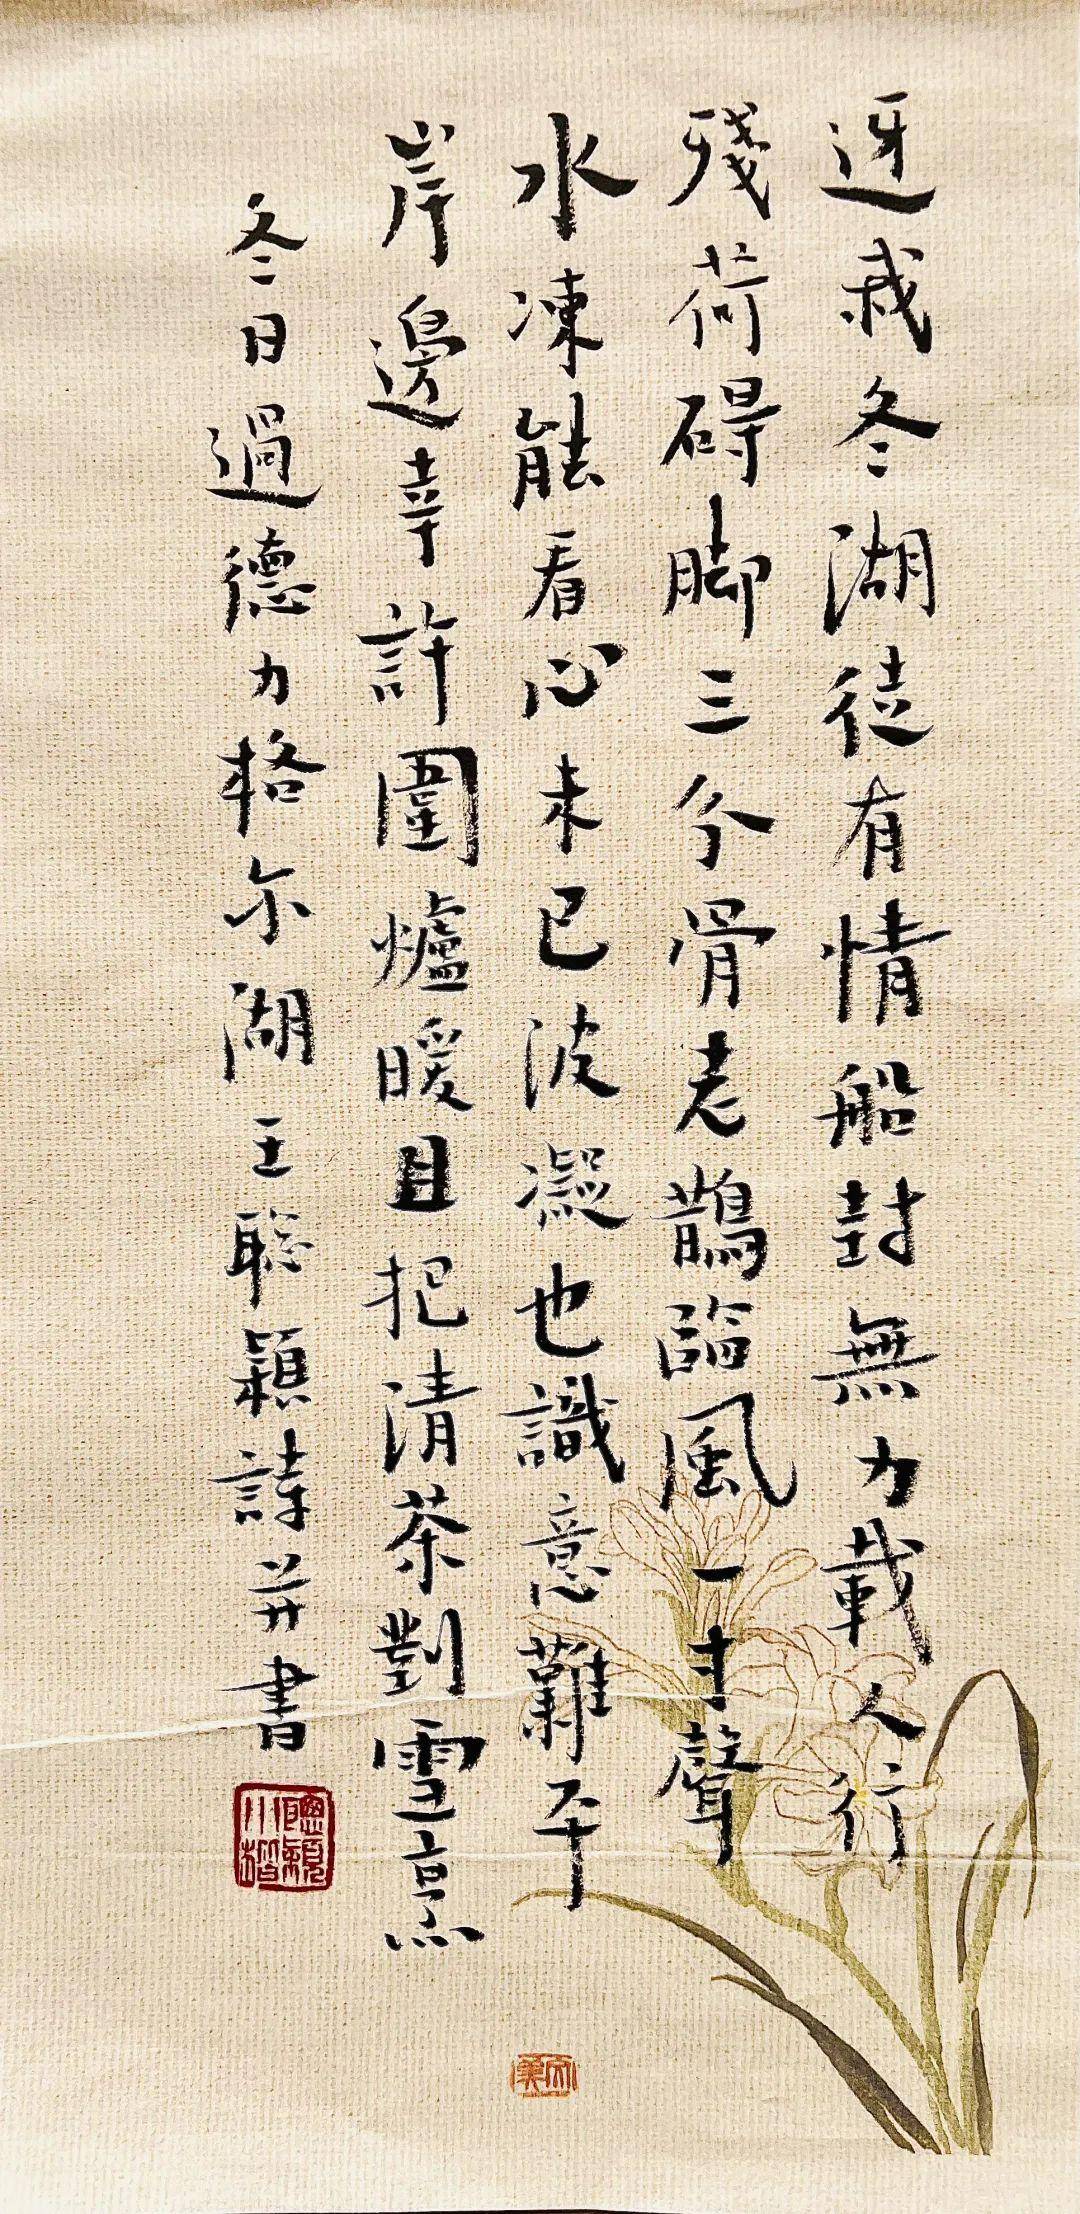 迓我冬湖徒有情船封無力載人行
殘荷碍脚三分骨老鵲臨風一寸聲
水凍能看心未已波凝也識意難平
岸邊幸許圍爐暖且把清茶對雪烹
冬日過德力格尔湖王聪穎詩并書
聰穎小楷